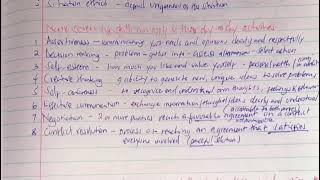 Situation ethics - depend judgement on the situation
life skills
day to day activities
1 Assertiveness - communicating your needs and opinions clearly and respectfully
2 Decision making - problems - gather info - alternatives - select action
3 Self-esteem - how much you like and value yourself - personal worth
4 Creative thinking - ability to generate new, unique ideas to solve problems
5 Self-awareness - to recognise and understand own strengths, feelings
6 Effective communication - exchange information/thoughts/ideas clearly and understood
7 Negotiation - 2 or more parties reach a favourable agreement on a conflict
8 Conflict resolution - process of reaching an agreement that satisfies
everyone involved (peaceful solution)